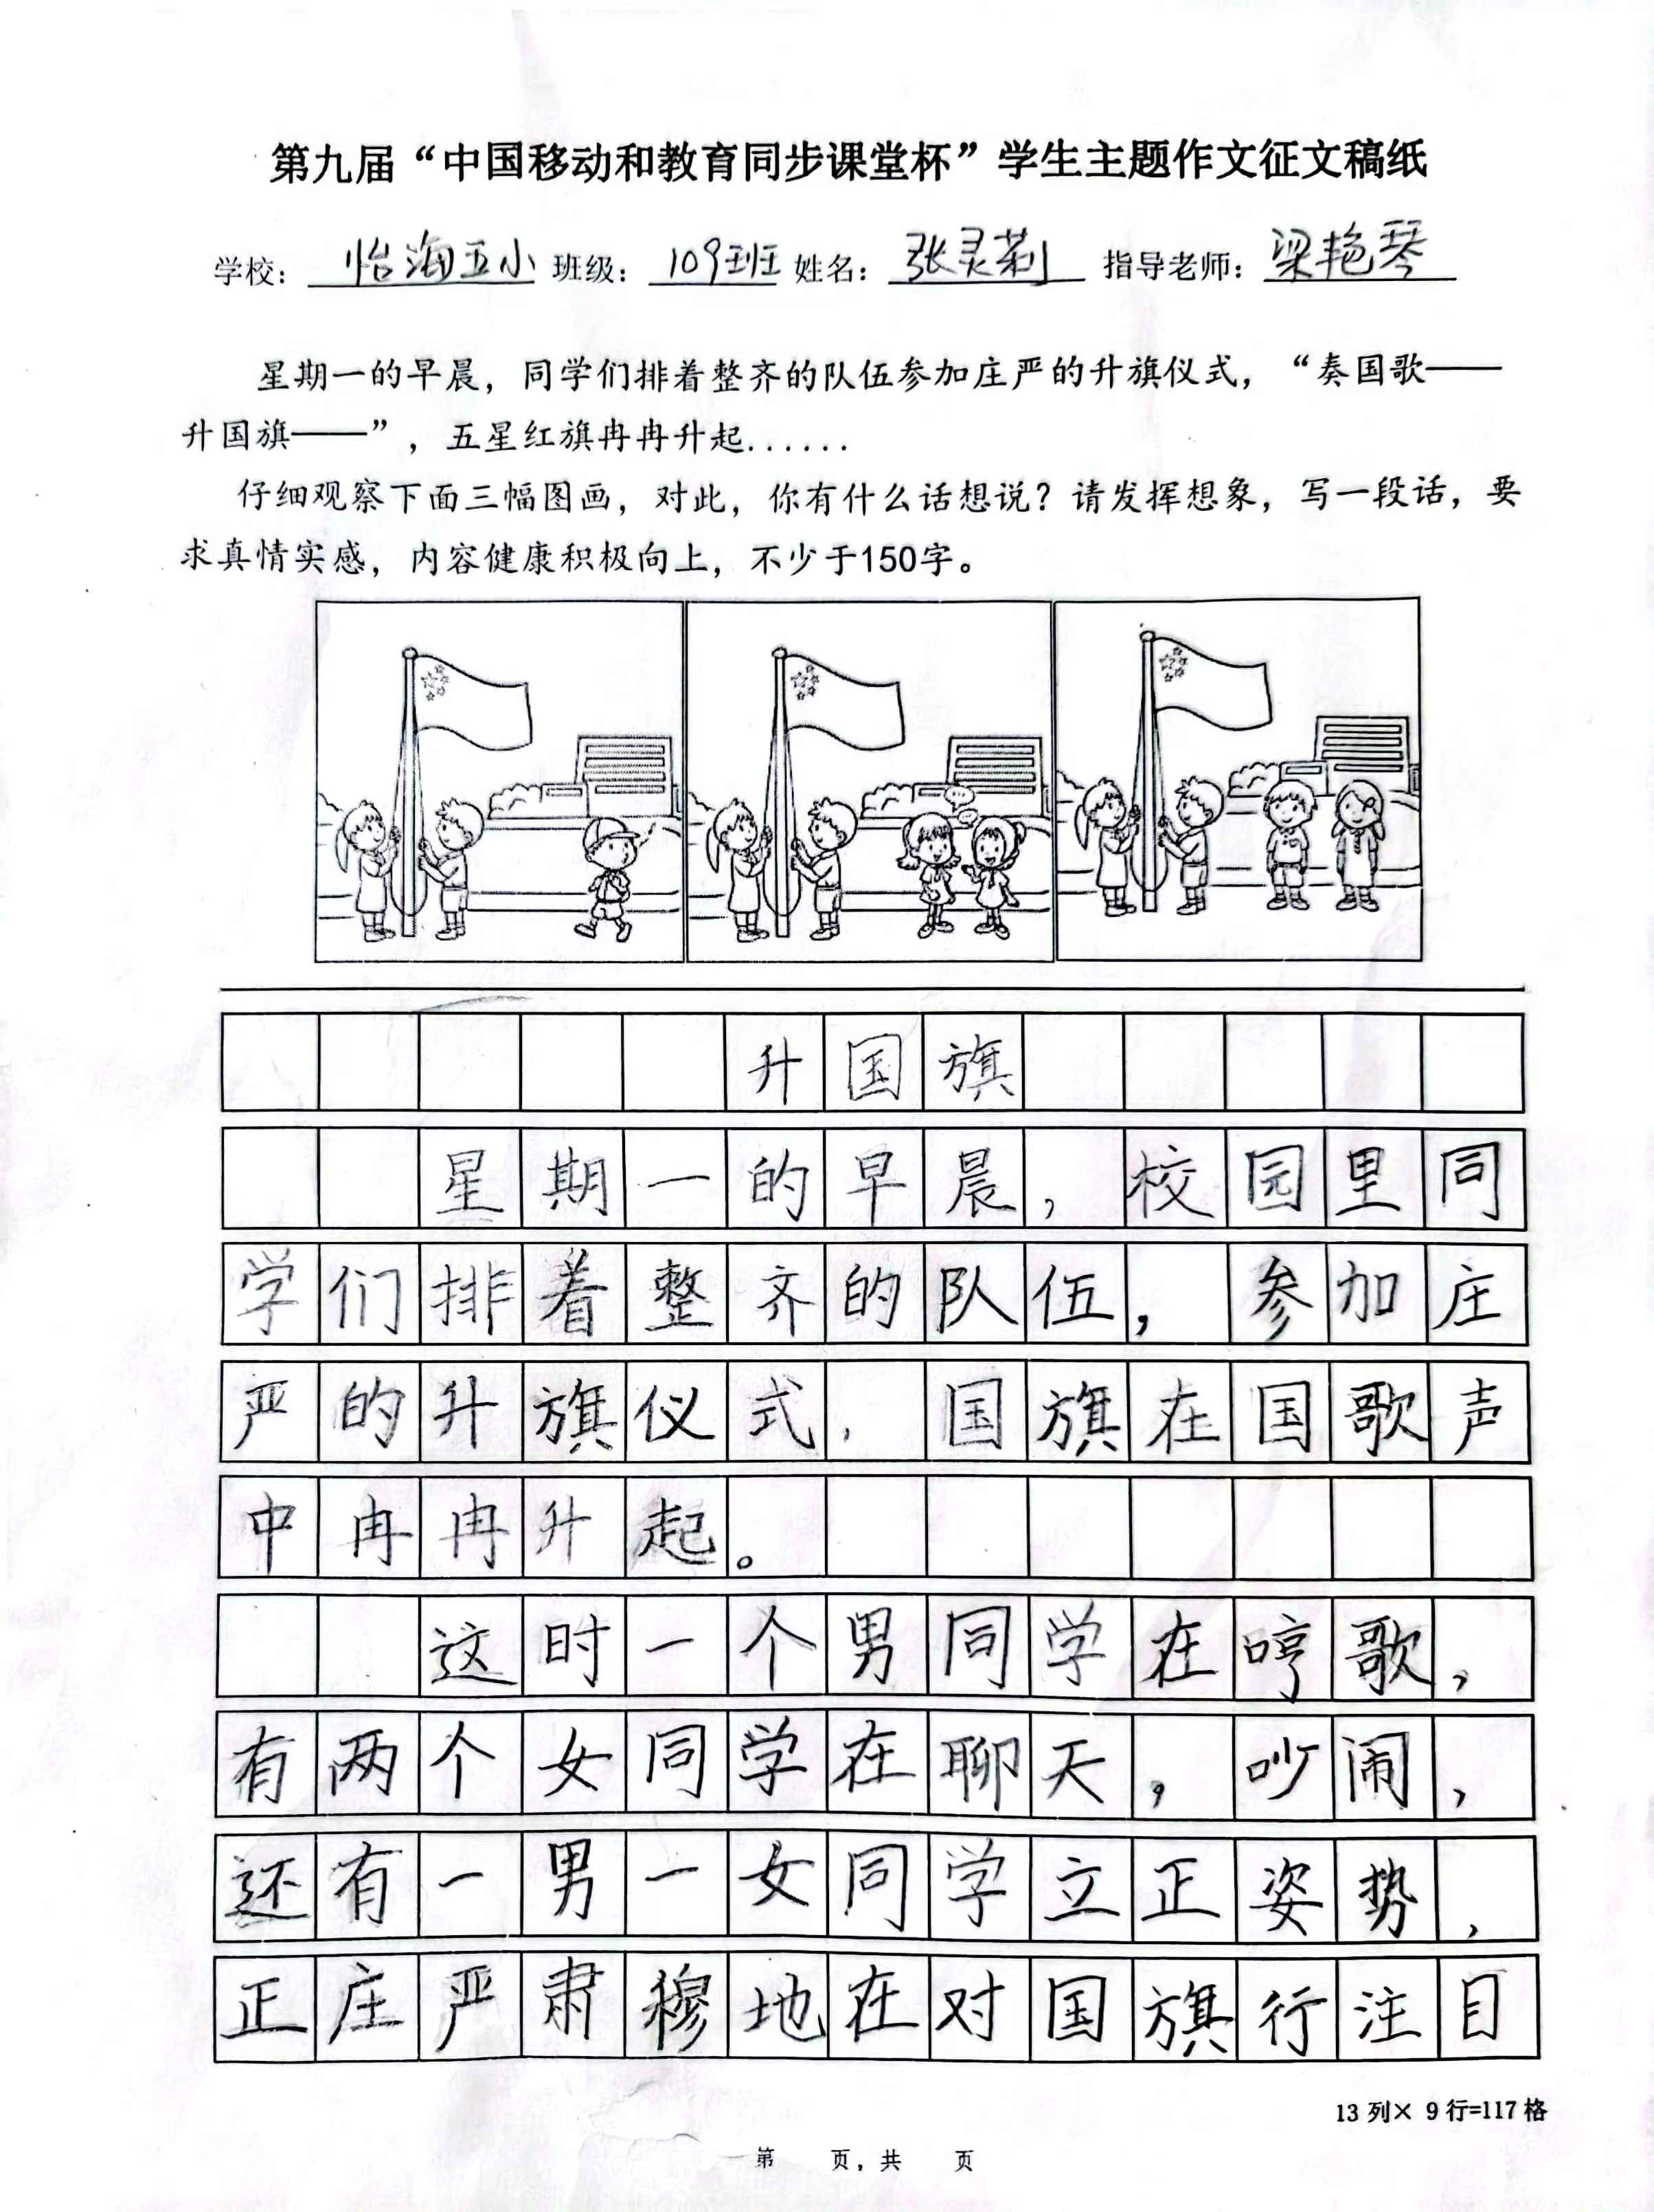 第九届“中国移动和教育同步课堂杯”学生主题作文征文稿纸
学校：怡海五小 班级：109班 姓名：张灵莉 指导老师：梁艳琴
星期一的早晨，同学们排着整齐的队伍参加庄严的升旗仪式，“奏国歌——
升国旗——”，五星红旗冉冉升起......
仔细观察下面三幅图画，对此，你有什么话想说？请发挥想象，写一段话，要
求真情实感，内容健康积极向上，不少于150字。
升国旗
星期一的早晨，校园里同
学们排着整齐的队伍，参加庄
严的升旗仪式，国旗在国歌声
中冉冉升起。
这时一个男同学在哼歌，
有两个女同学在聊天，吵闹，
还有一男一女同学立正姿势，
正庄严肃穆地在对国旗行注目
13列× 9行=117格
第 页，共 页